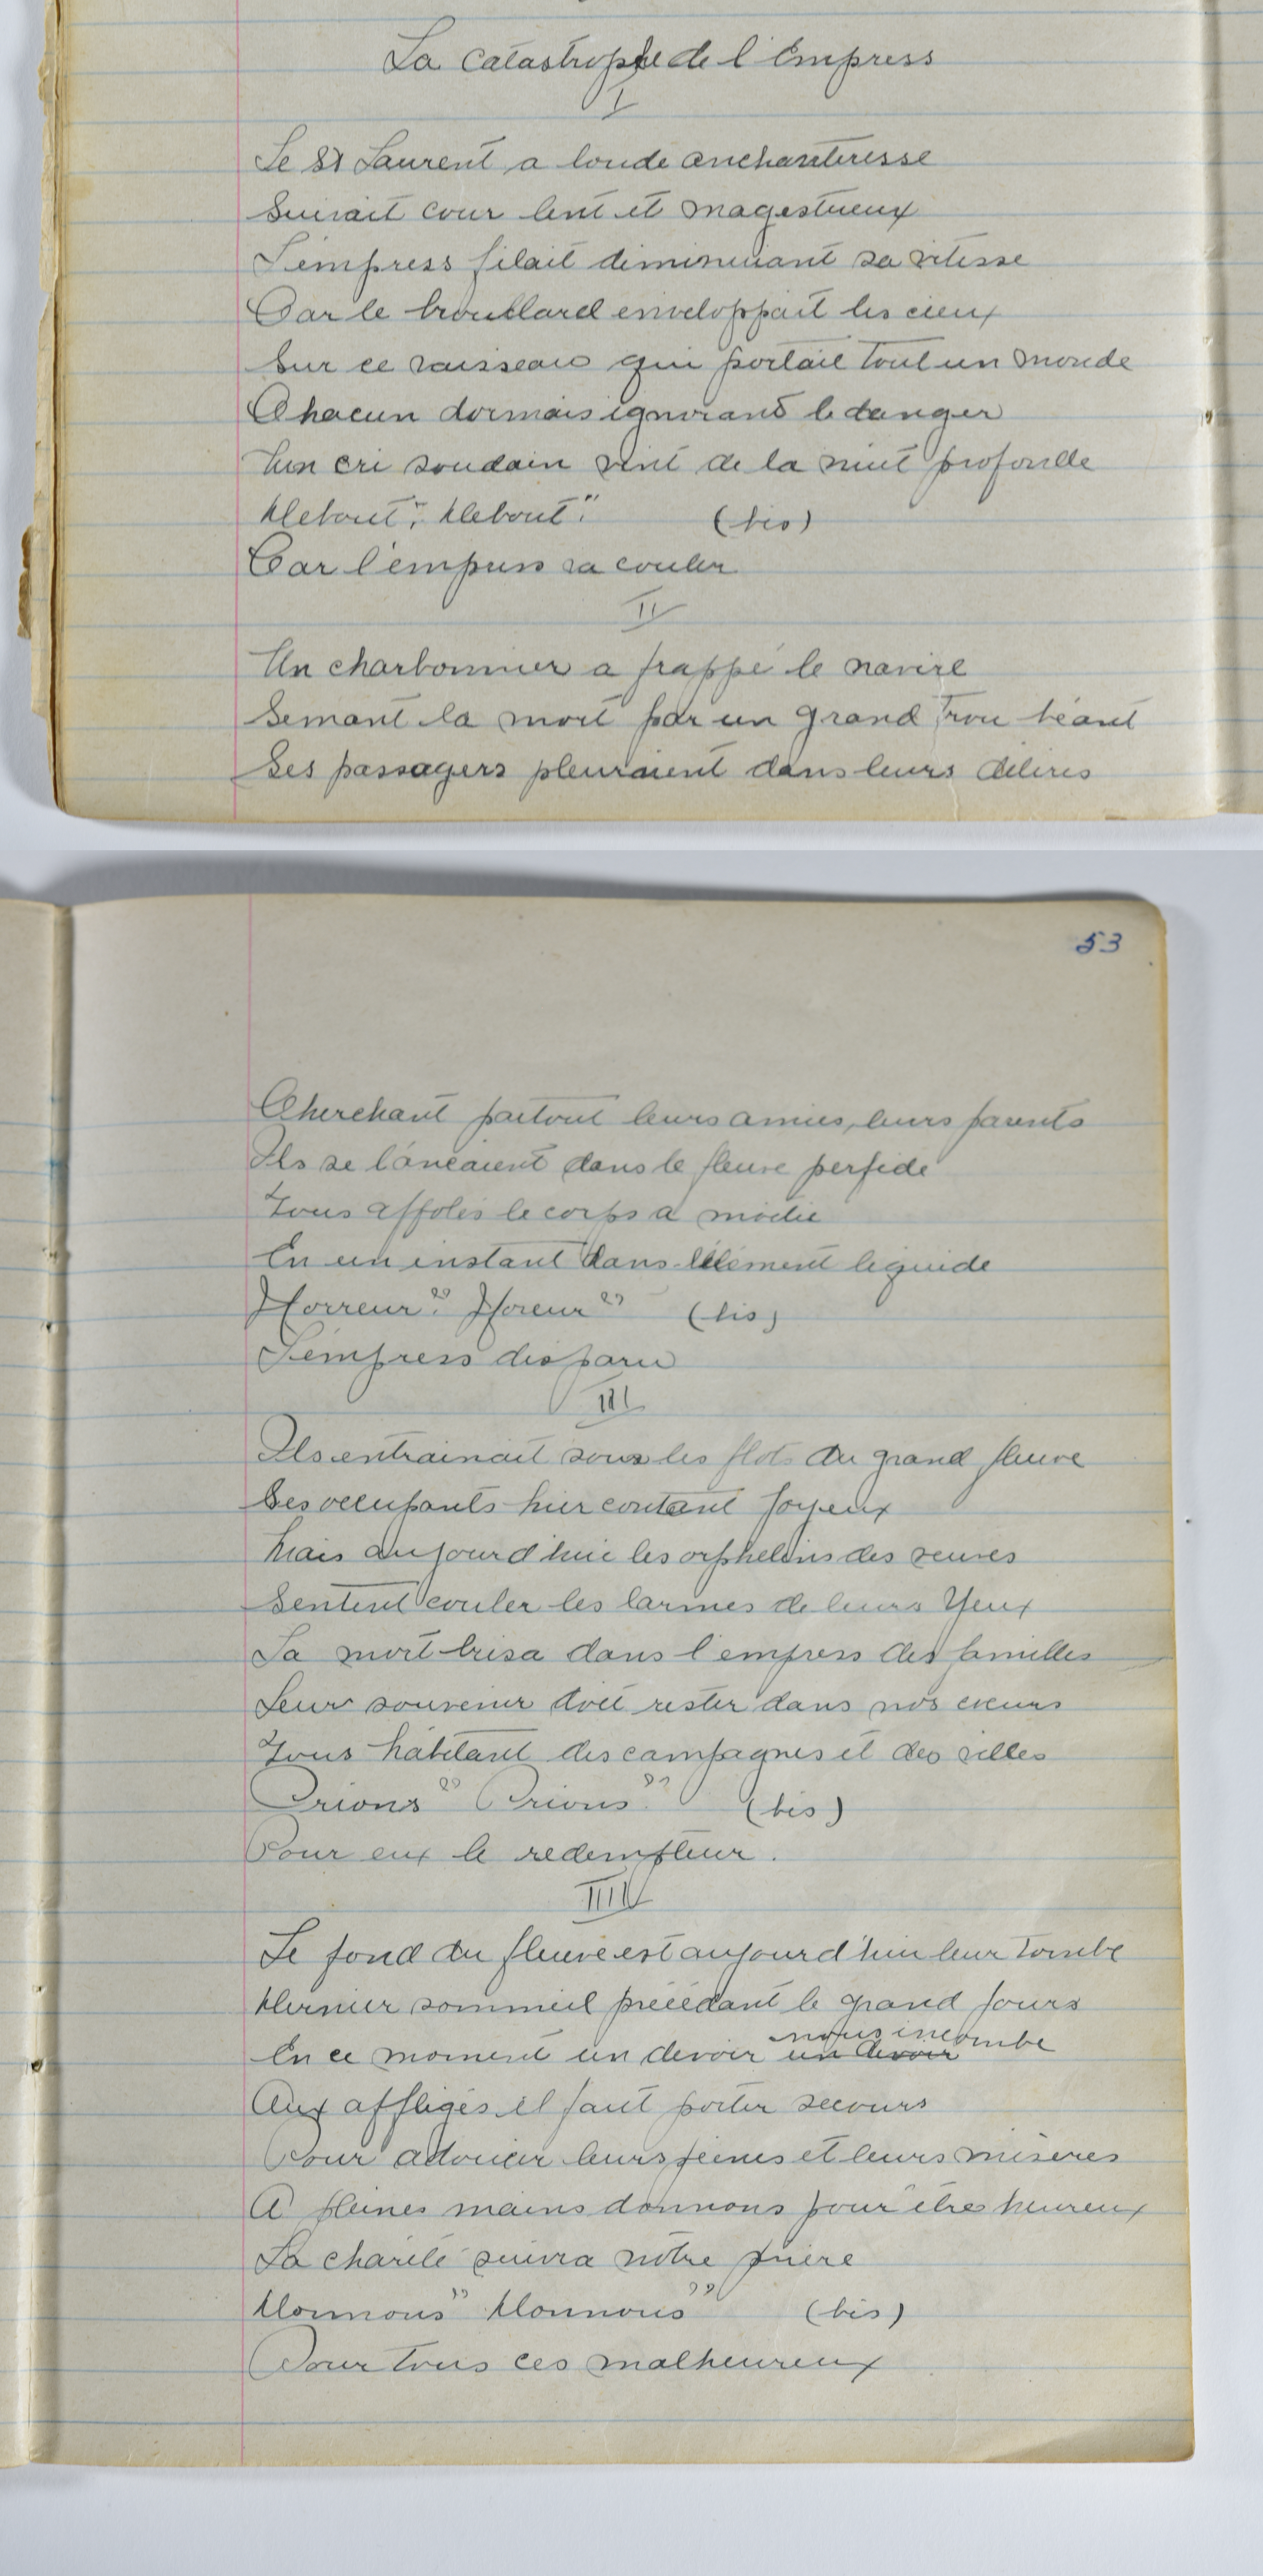 La catastrophe de l'Empress
I
Le St Laurent a londe anchanteresse
Suivait cour lent et magestueux
L'empress filait diminuant sa vitesse
Car le brouillard enveloppait les cieux
Sur ce vaisseau qui portait tout un monde
Chacun dormais ignorant le danger
Un cri soudain vint de la nuit profonde
Debout", Debout" (bis)
Car l'empress va couler
II
Un charbonnier a frappé le navire
Semant la mort par un grand trou béant
Ses passagers pleuraient dans leurs délires
53
Cherchant partout leurs amies, leurs parents
Ils se lançaient dans le fleuve perfide
Tous affolés le corps a moitié
En un instant dans l'élément liquide
Horreur" Horeur" (bis)
L'empress disparu
III
Ils entrainait sous les flots du grand fleuve
Ses occupants hier contant joyeux
Mais aujourd'hui les orphelins des veuves
Sentent couler les larmes de leurs yeux
La mort brisa dans l'empress des familles
Leur souvenir doit rester dans nos cœurs
Tous habitant des campagnes et des villes
Prions" Prions" (bis)
Pour eux le redempteur.
IIII
Le fond du fleuve est aujourd'hui leur tombe
Dernier sommeil précédant le grand jours
En ce moment un devoir un devoir nous incombe
Aux affligés il faut porter secours
Pour adoucir leurs peines et leurs misères
A pleines mains donnons pour être heureux
La charité suivra notre prière
Donnons" Donnons" (bis)
Pour tous ces malheureux